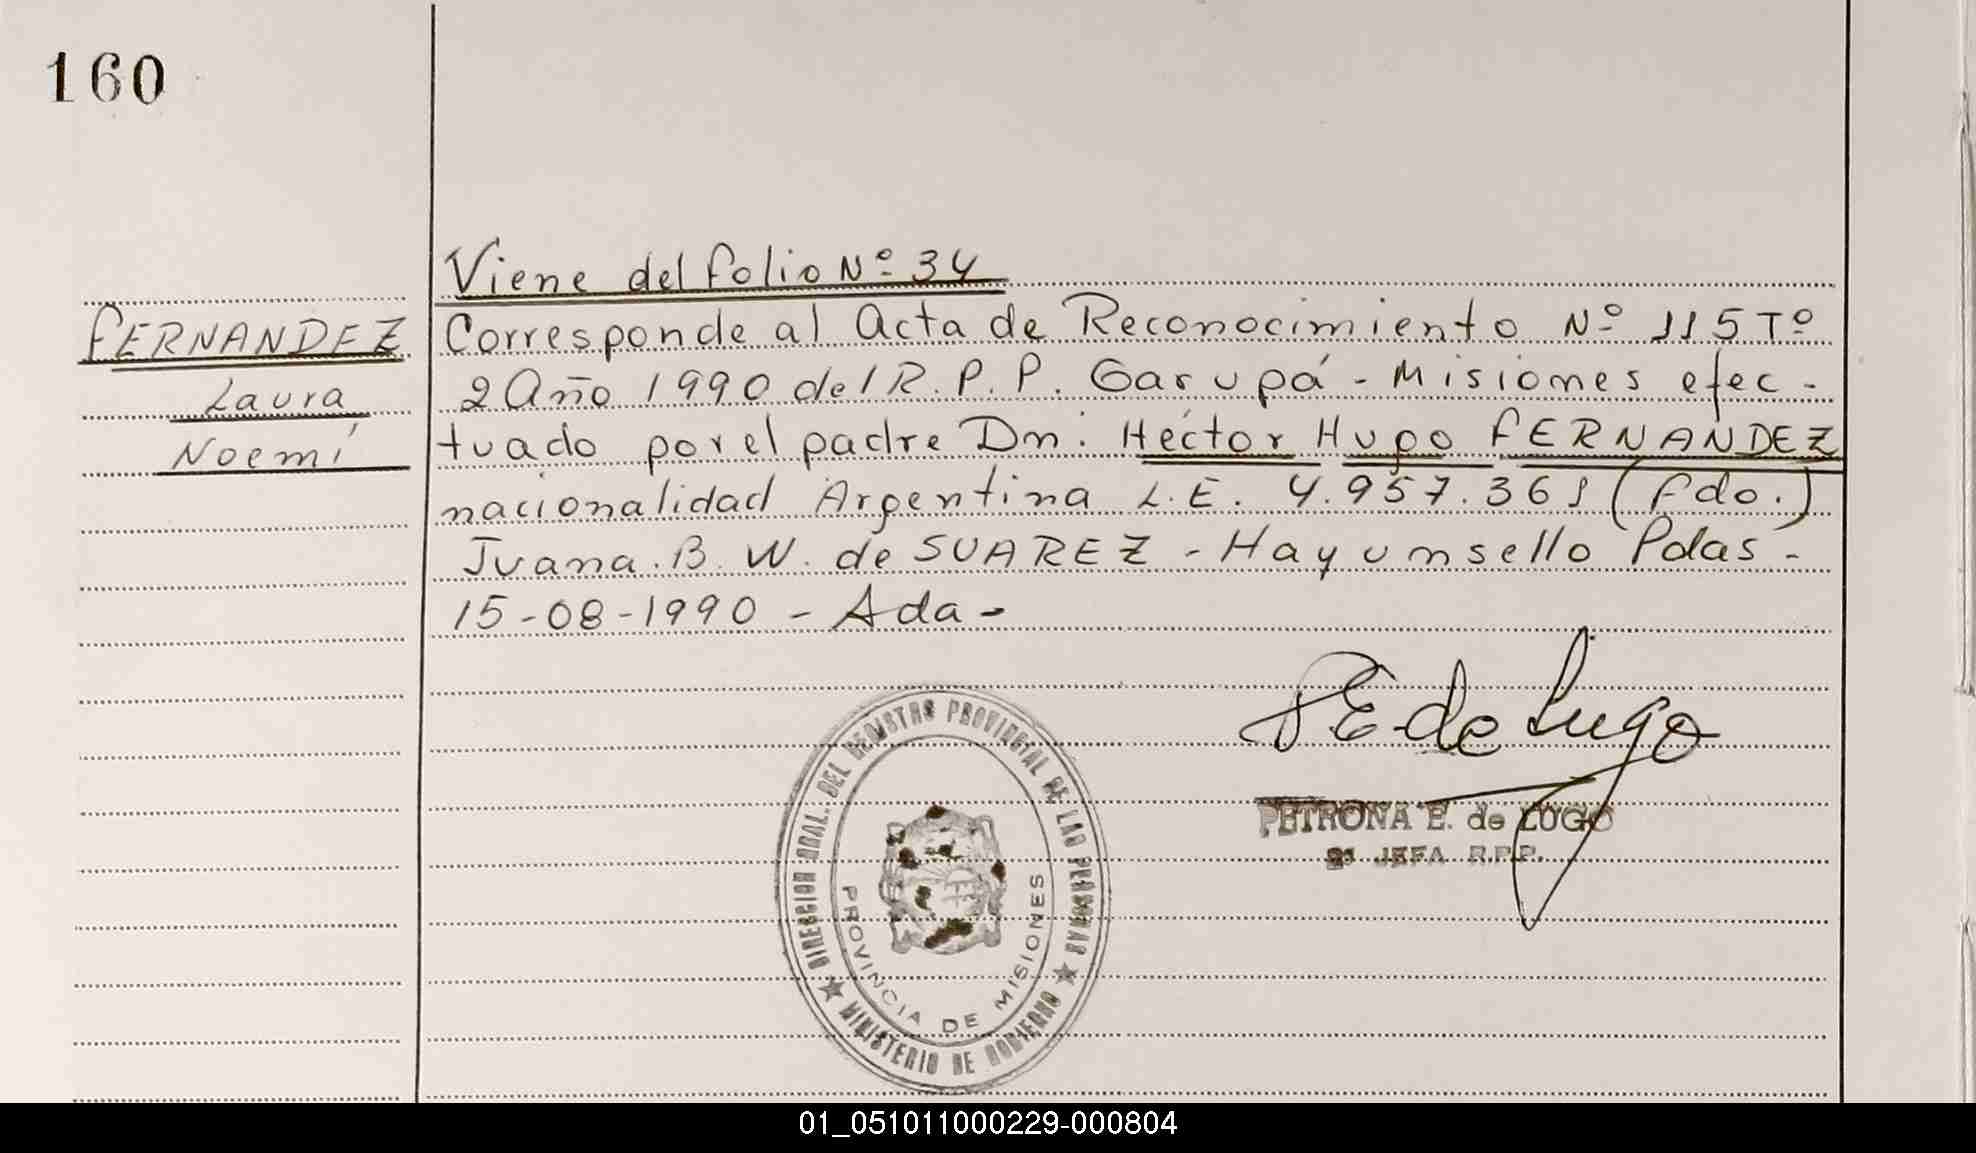 160
Viene del folio Nº 34
FERNANDEZ
Laura
Noemí
Corresponde al Acta de Reconocimiento Nº 115 Tº
2 Año 1990 del R.P.P. Garupá - Misiones efec-
tuado por el padre Dn. Héctor Hugo FERNANDEZ
nacionalidad Argentina L.E. 4.957.361 (fdo.)
Juana. B. W. de SUAREZ - Hay un sello Pdas -
15-08-1990 - Ada -
P E de Lugo
PETRONA E. de LUGO
2ª JEFA R.P.P.
DIRECCION GRAL. DEL REGISTRO PROVINCIAL DE LAS PERSONAS
PROVINCIA DE MISIONES
MINISTERIO DE GOBIERNO
01_051011000229-000804